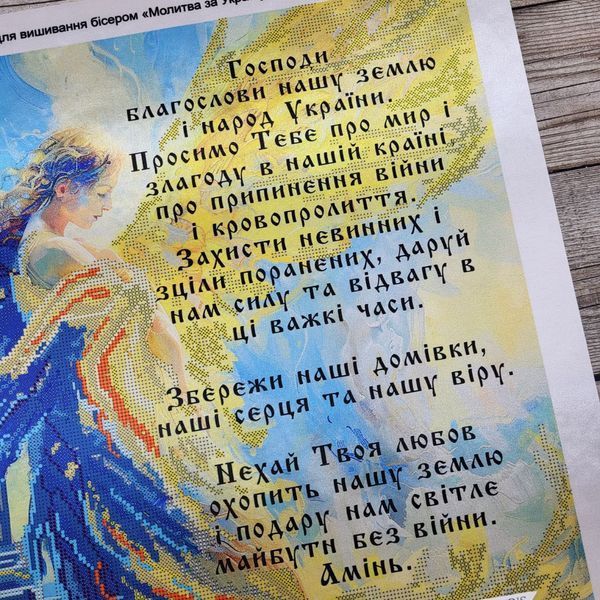 для вишивання бісером «Молитва за Укра
Господи
благослови нашу землю
і народ України.
Просимо Тебе про мир і
злагоду в нашій країні,
про припинення війни
і кровопролиття.
Захисти невинних і
зціли поранених, даруй
нам силу та відвагу в
ці важкі часи.
Збережи наші домівки,
наші серця та нашу віру.
Нехай Твоя любов
охопить нашу землю
і подару нам світле
майбутн без війни.
Амінь.